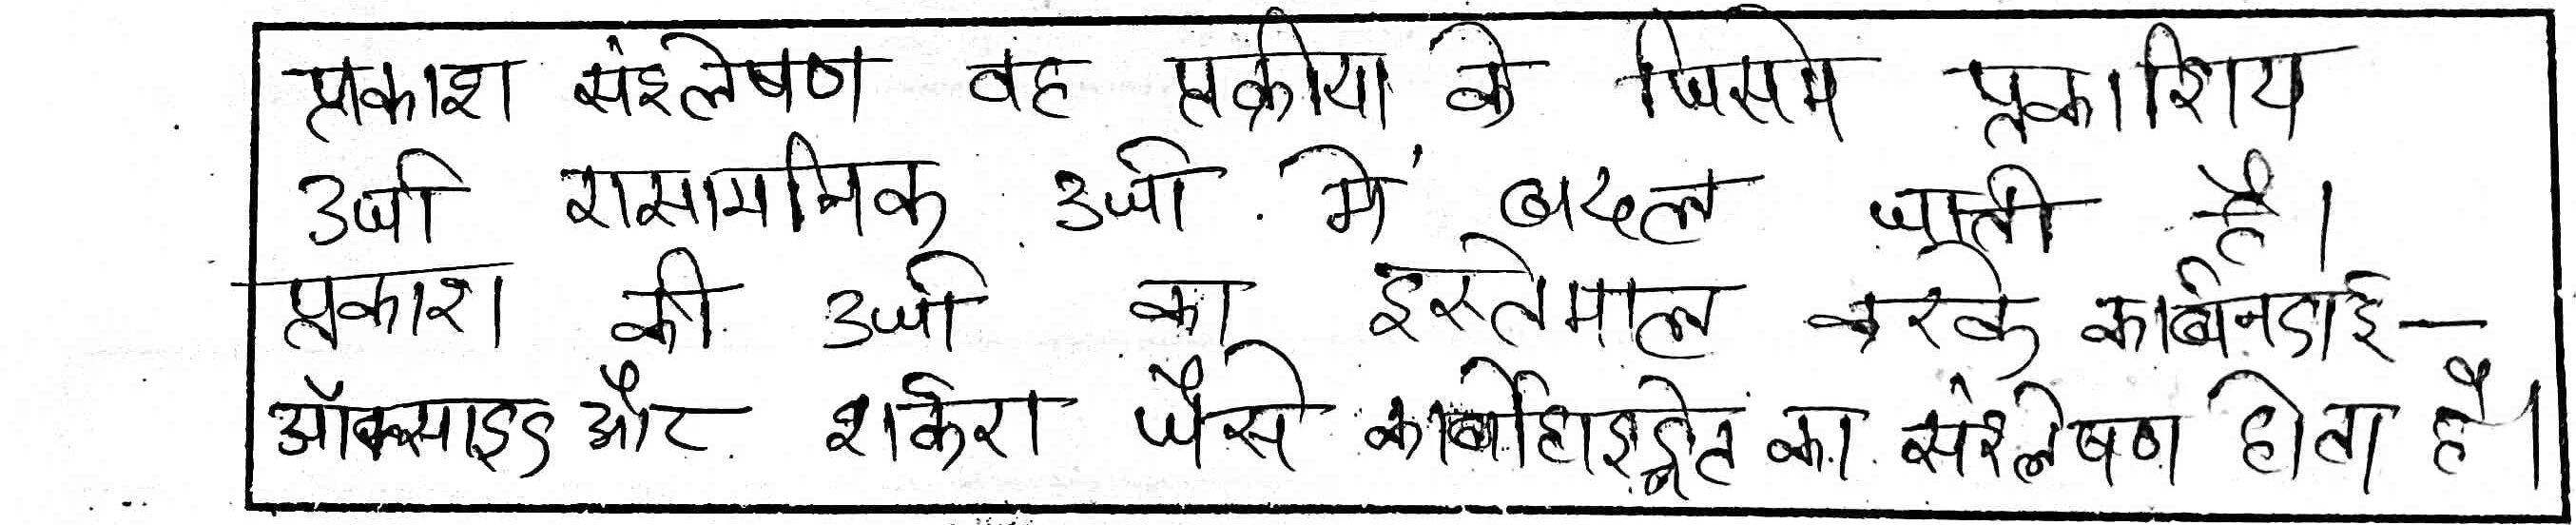 प्रकाश संश्लेषण वह प्रक्रीया के जिसमे प्रकाशिय
उर्जा रासायनिक उर्जा में बदल जाती है।
प्रकाश की उर्जा का इस्तेमाल करके कार्बनडाई-
ऑक्साइड और शर्करा जैसे कार्बोहाइड्रेट का संश्लेषण होता है।